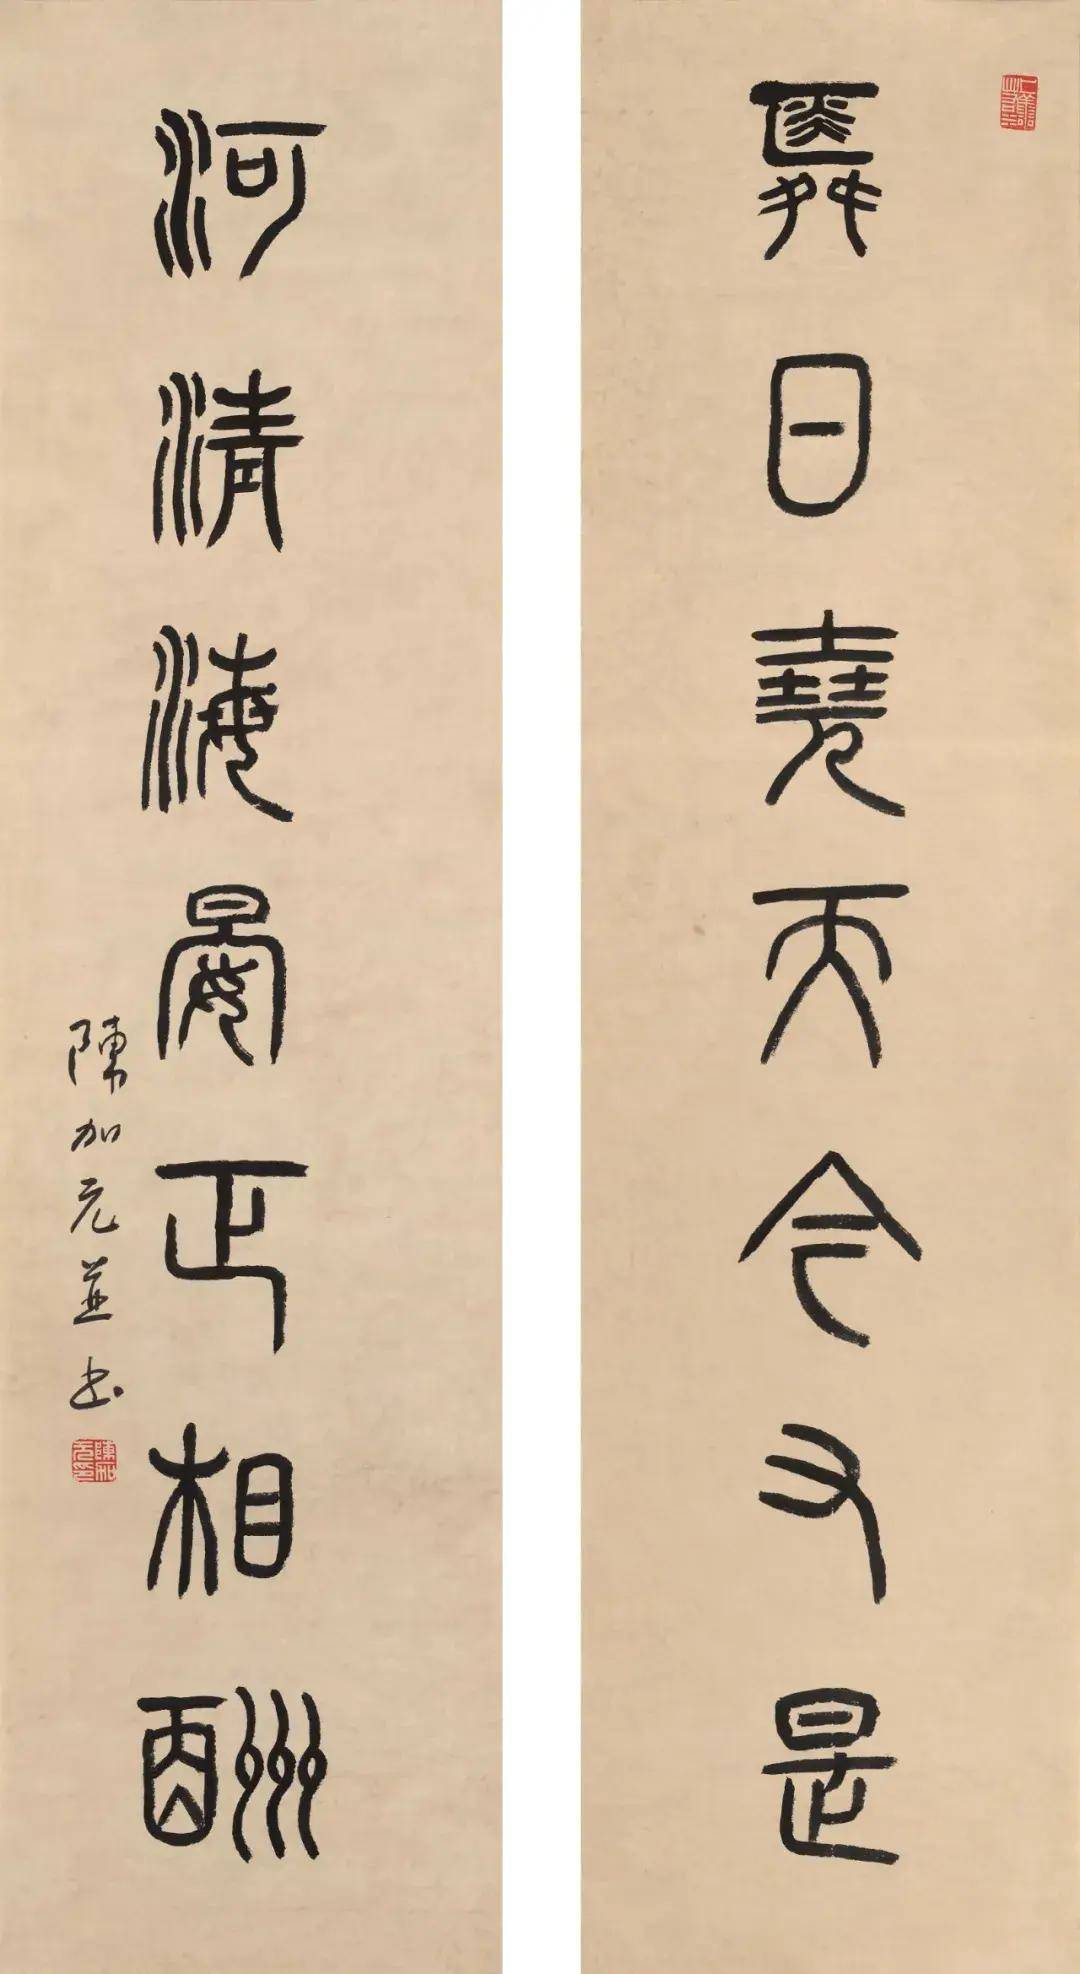 舜日堯天今又是
河清海晏正相酬
陳加元並书